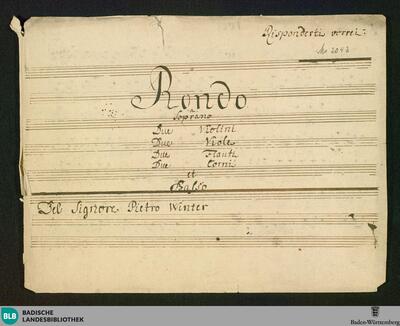 Risponderti vorrei.
Ms 2042
Rondo
Soprano
Due Violini
Due Viole
Due Flauti
Due Corni
et
Basso
Del Signore Pietro Winter
BLB BADISCHE
LANDESBIBLIOTHEK
Baden-Württemberg